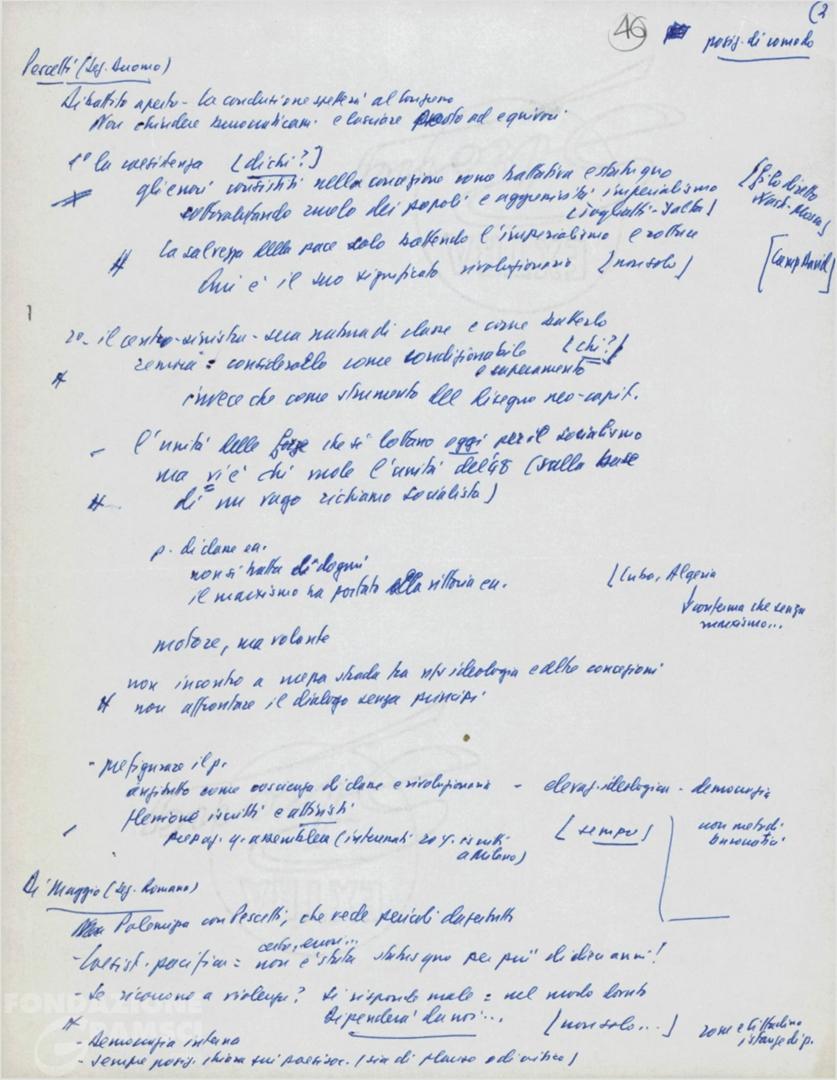 (2
46
posiz. di comodo
Pescetti (Sez. Duomo)
Dibattito aperto - la conduzione spetterà al Congresso
Non chiudere burocraticam. e lasciare posto ad equivoci
1° la coesistenza [di chi?]
gli errori consistiti nella concezione come trattativa e status quo
sottovalutando ruolo dei popoli e aggressività imperialismo
[Togliatti - Yalta]
[filo diretto
Mosca]
la salvezza della pace solo battendo l'imperialismo e
Qui è il suo significato rivoluzionario [non solo]
[Camp David]
2° - il centro-sinistra - sua natura di classe e come batterlo
= considerarlo come condizionabile [chi?]
e superamento
invece che come strumento del disegno neo-capit.
- l'unità delle forze che si battono oggi per il socialismo
ma vi è chi vuole l'unità del 48 (sulla base
di un vago richiamo socialista)
p. di classe ecc.
non si tratta di dogmi
il marxismo ha portato alla vittoria ecc.
[Cuba, Algeria
conferma che senza
marxismo...
motore, ma volante
non incontro a mezza strada tra ns/ ideologia e altre concezioni
non affrontare il dialogo senza principi
- prefigurare il p.
anzitutto come coscienza di classe e rivoluzionaria - elevaz. ideologica - democrazia
flessione iscritti e attivisti
prepaz. q. assemblea (intervenuti 20% iscritti
a Milano)
[sempre]
non metodi
burocratici
Di Maggio (Sez. Romano)
Polemizza con Pescetti, che vede pericoli dappertutto
certo, errori...
- Coesist. pacifica = non è stata status quo per più di dieci anni!
- Se ricorrono a violenza? Si risponde male = nel modo dovuto
Dipenderà da noi... [non solo...]
- Democrazia interna
- sempre posiz. chiara sui (sia di plauso o di critica)
FONDAZIONE
GRAMSCI